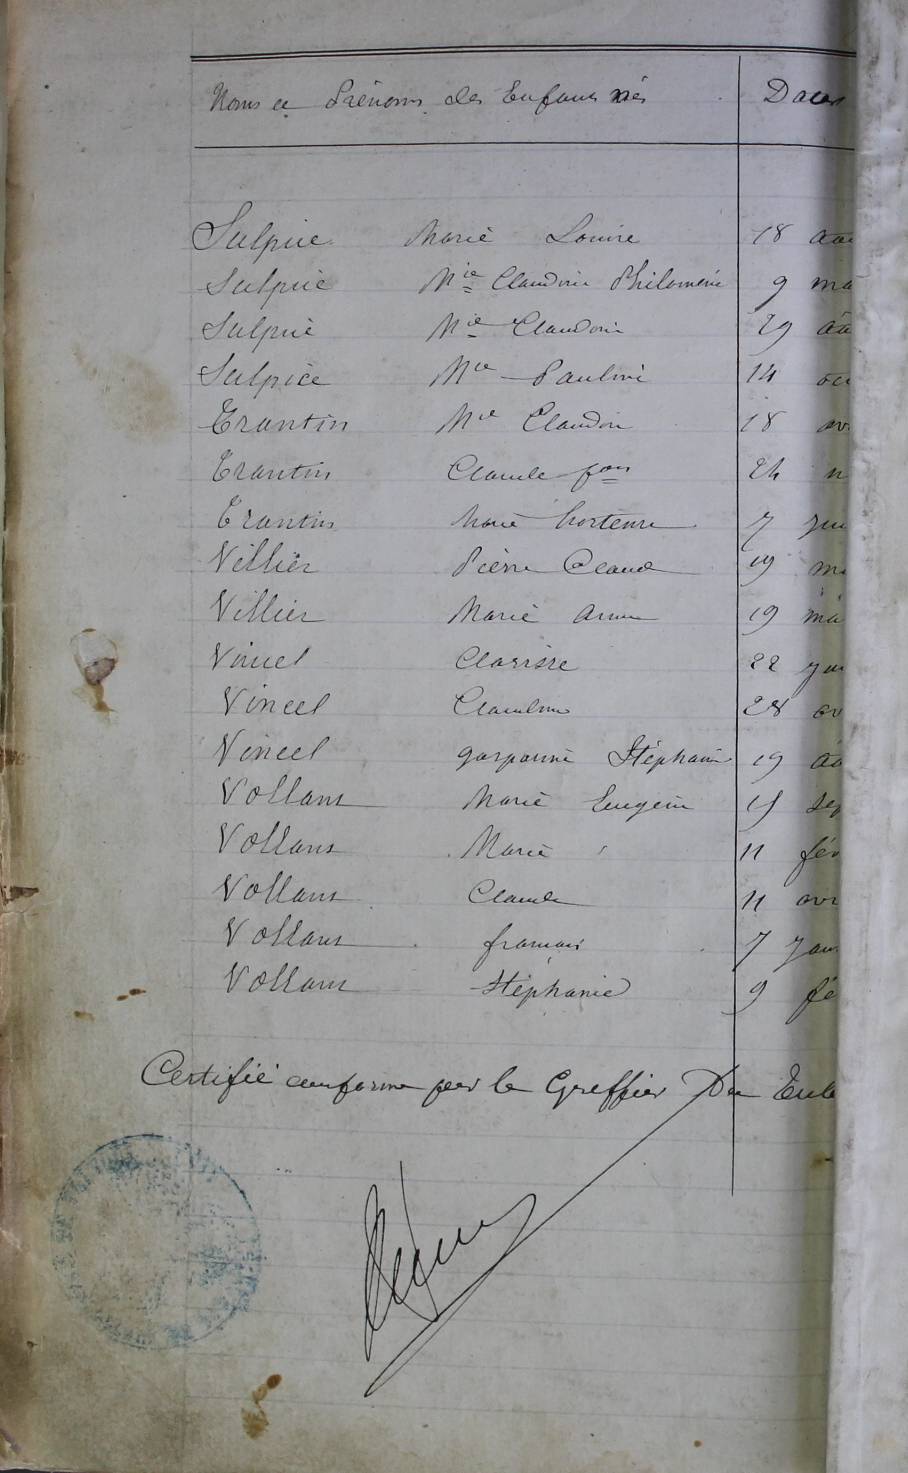 Noms et Prénoms des Enfants nés Dates
Sulpice Marie Louise 18 aoû
Sulpice Mie Claudine Philomène 9 ma
Sulpice Mie Claudine 29 aoû
Sulpice Mie Pauline 14 oc
Trantin Mie Claudine 18 av
Trantin Claude fois 24 n
Trantin Marie hortense 7 jui
Villier Pierre Claude 19 ma
Villier Marie Anne 19 ma
Vincel Clarisse 22 jan
Vincel Claudine 28 av
Vincel gasparine Stéphanie 19 aoû
Vollant Marie Eugénie 15 sep
Vollant Marie 11 fév
Vollant Claude 11 avr
Vollant françois 7 jan
Vollant Stéphanie 9 fé
Certifié conforme par le Greffier Du